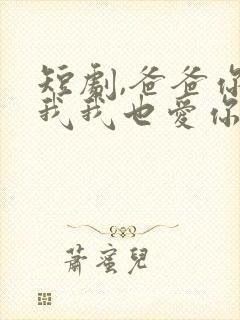 短劇,爸爸你
我我也愛你
蕭蜜兒